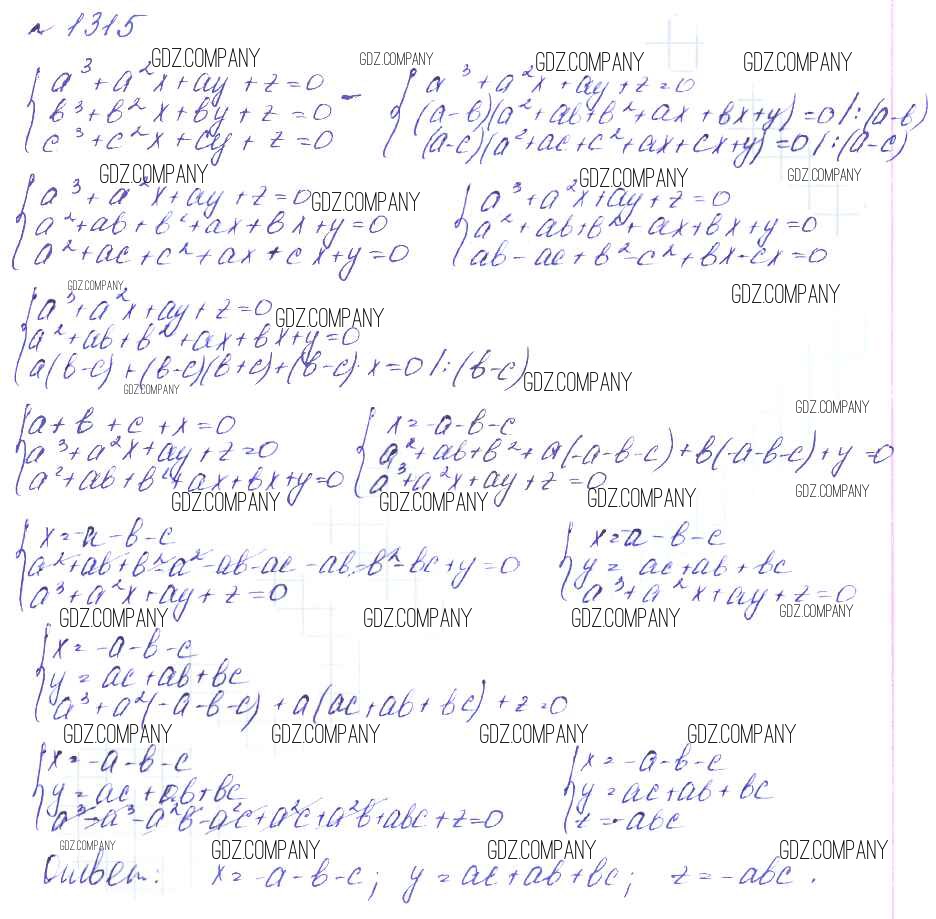 № 1315
GDZ.COMPANY GDZ.COMPANY GDZ.COMPANY GDZ.COMPANY
a³ + a²x + ay + z = 0 - a³ + a²x + ay + z = 0
b³ + b²x + by + z = 0 (a-b)(a² + ab + b² + ax + bx + y) = 0 /:(a-b)
c³ + c²x + cy + z = 0 (a-c)(a² + ac + c² + ax + cx + y) = 0 /:(a-c)
GDZ.COMPANY GDZ.COMPANY GDZ.COMPANY
a³ + a²x + ay + z = 0 GDZ.COMPANY a³ + a²x + ay + z = 0
a² + ab + b² + ax + bx + y = 0 a² + ab + b² + ax + bx + y = 0
a² + ac + c² + ax + cx + y = 0 ab - ac + b² - c² + bx - cx = 0
GDZ.COMPANY GDZ.COMPANY
a³ + a²x + ay + z = 0 GDZ.COMPANY
a² + ab + b² + ax + bx + y = 0
a(b-c) + (b-c)(b+c) + (b-c)·x = 0 /:(b-c) GDZ.COMPANY
GDZ.COMPANY GDZ.COMPANY
a + b + c + x = 0 x = -a-b-c
a³ + a²x + ay + z = 0 a² + ab + b² + a(-a-b-c) + b(-a-b-c) + y = 0
a² + ab + b² + ax + bx + y = 0 a³ + a²x + ay + z = 0
GDZ.COMPANY GDZ.COMPANY GDZ.COMPANY GDZ.COMPANY
x = -a-b-c x = -a-b-c
a² + ab + b² - a² - ab - ac - ab - b² - bc + y = 0 y = ac + ab + bc
a³ + a²x + ay + z = 0 a³ + a²x + ay + z = 0
GDZ.COMPANY GDZ.COMPANY GDZ.COMPANY GDZ.COMPANY
x = -a-b-c
y = ac + ab + bc
a³ + a²(-a-b-c) + a(ac + ab + bc) + z = 0
GDZ.COMPANY GDZ.COMPANY GDZ.COMPANY GDZ.COMPANY
x = -a-b-c x = -a-b-c
y = ac + ab + bc y = ac + ab + bc
a³ - a³ - a²b - a²c + a²c + a²b + abc + z = 0 z = -abc
GDZ.COMPANY GDZ.COMPANY GDZ.COMPANY GDZ.COMPANY
Ответ: x = -a-b-c; y = ac + ab + bc; z = -abc.